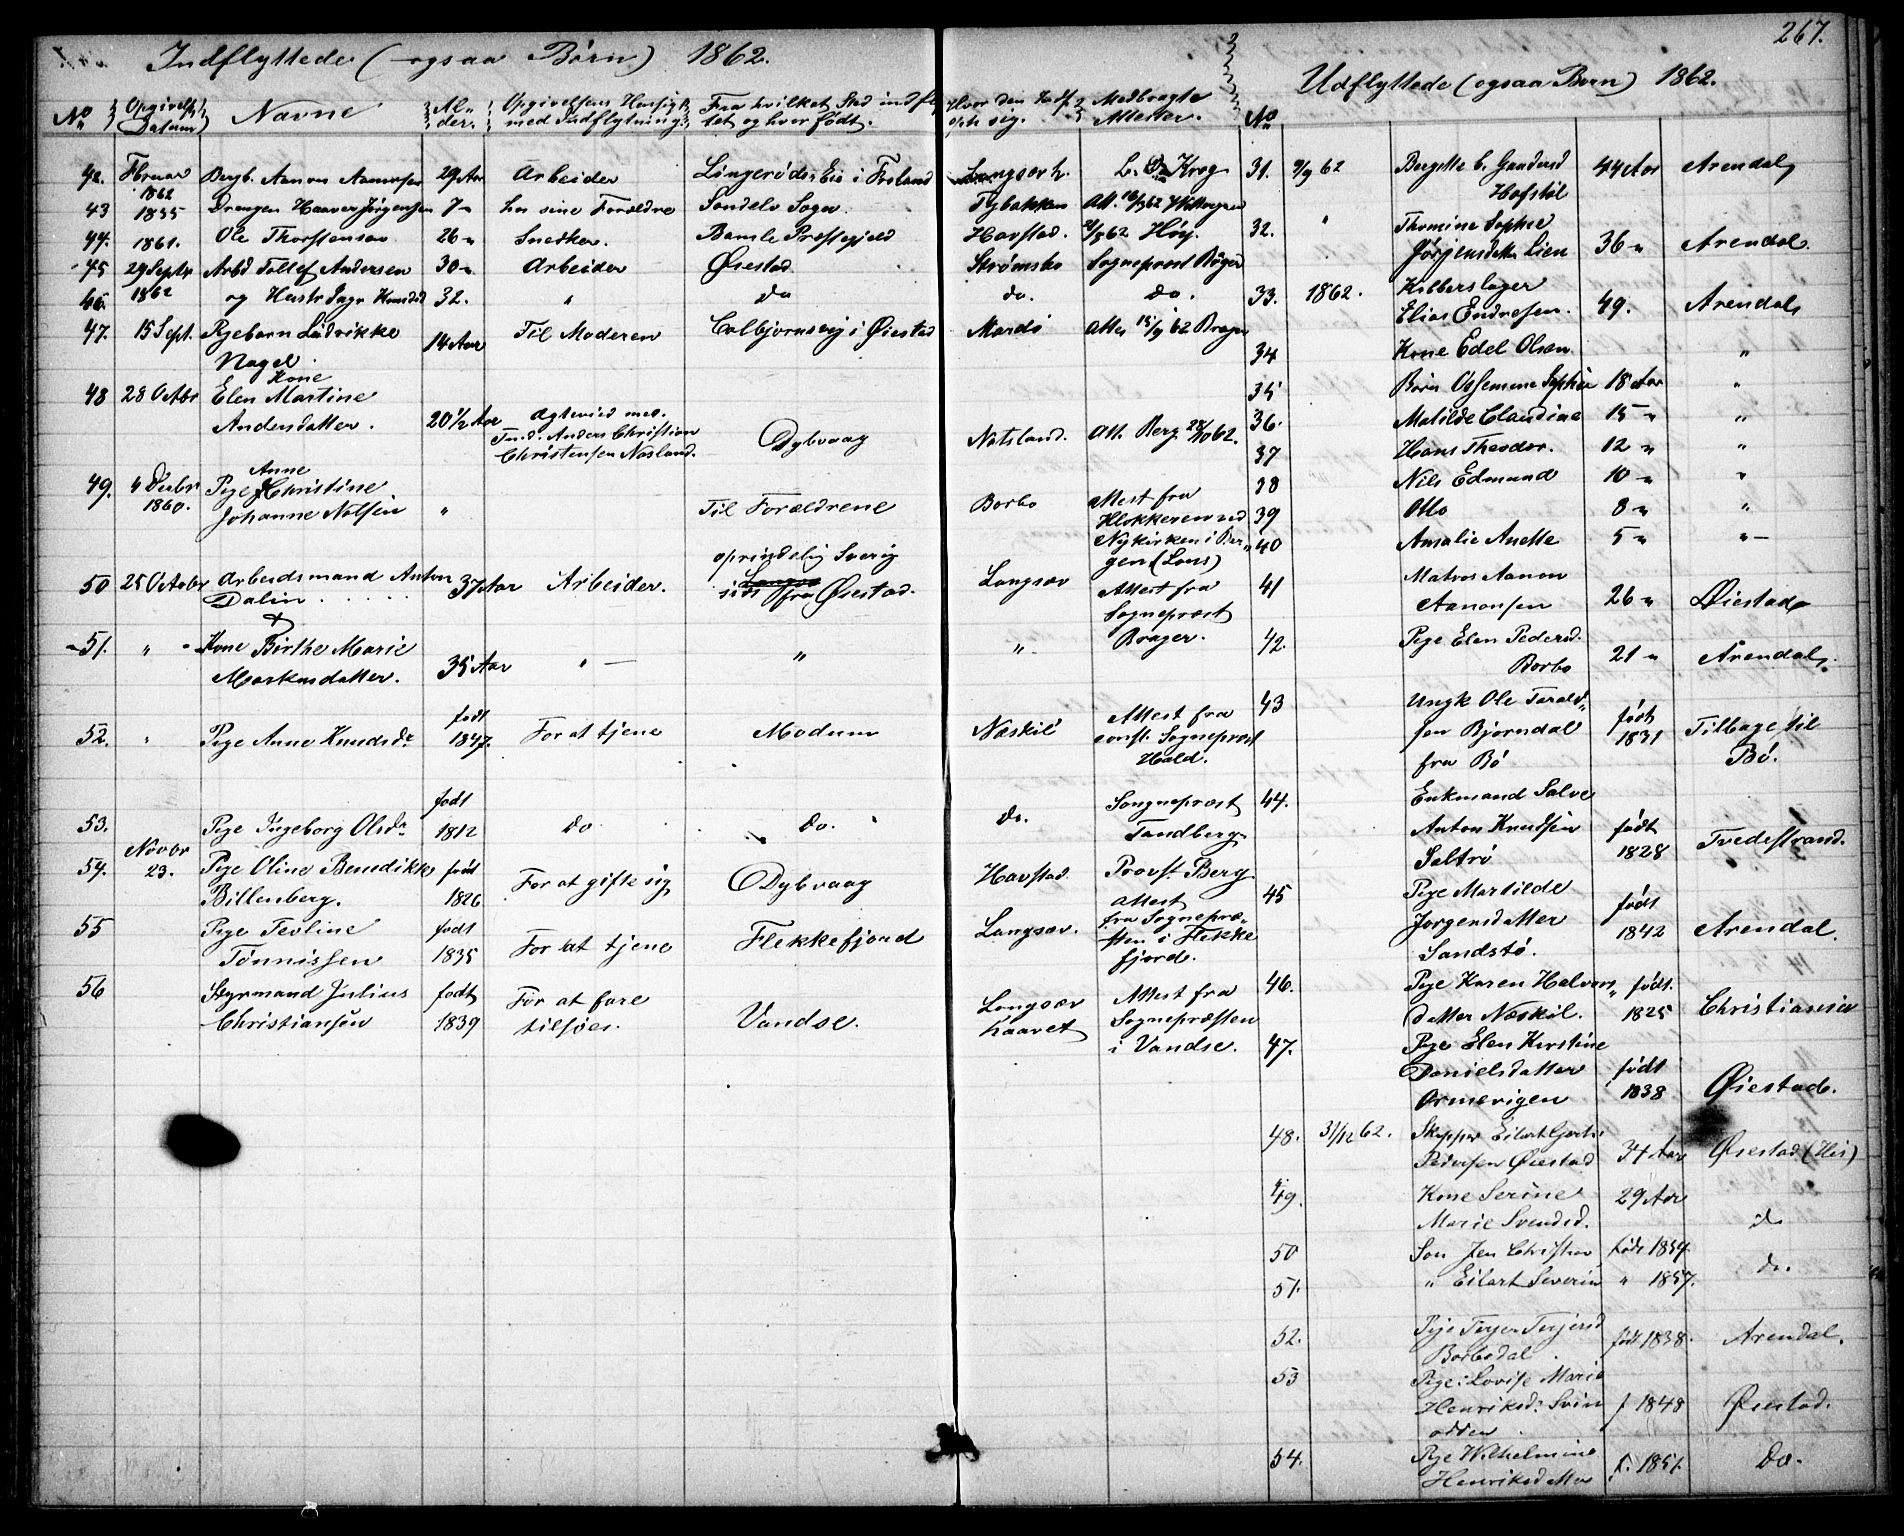 267.
Indflyttede (ogsaa Børn) 1862.
No Opgivelses Datum Navne Alder. Opgivelsen Hensigt med Indflytning. Fra hvilket Sted indflyttet og hvor født. Hvor den Indf. oph. sig. Medbragte Attester.
42. Februar 1862 Aanon 29 Aar Arbeider i Froland L. Krog
43 1835 Drengen Haaver Jørgensen 7 " hos sine Forældre Sondelv Sogn Tybakken Att.
44. 1861. Ole Thorstensen 26 " Snedker. Bamle Præstegjeld Havstad. Høy.
45 29 Septr 1862 Arbd Tollef Andersen 30 " Arbeider Øiestad Strømsbo Sogneprest
46. og Hustr Inger Knudsd 32. " do do. do.
47. 15 Sept. Pigebarn Ludrikke Nagel. 14 Aar Til Moderen Colbjørnsvig i Øiestad Mardø Att. 15/9 62
48 28 Octbr Kone Elen Martine Andersdatter. 20 1/2 Aar Ægteviet med Anders Christian Christensen Næsland. Dybvaag Natsland. Att. Berg 28/10 62.
49. 4 Decbr 1860. Pige Anne Christine Johanne Nelsen " Til Forældrene Borbo Attest fra Klokkeren ved Nykirken i Bergen (Lous)
50 25 Octobr Arbeidsmand Anton Dalin. 37 Aar Arbeider. oprindelig Sverig sidst fra Øiestad. Langsæv Attest fra Sogneprest Brager.
51. " Kone Birthe Marie Markusdatter. 35 Aar " " "
52. " Pige Anne Knudsdr født 1847. For at tjene Modum Næskil Attest fra const. Sogneprest Hald.
53. Pige Ingeborg Olsdr født 1812 do do. do. Sogneprest Tandberg
54. Novbr 23. Pige Oline Benedikte Billenberg. født 1826 For at gifte sig Dybvaag Havstad. Provst Berg
55 Pige Tevline Tønnissen født 1835 For at tjene Flekkefjord Langsæv. Attest fra Sognepræsten i Flekkefjord.
56 Styrmand Julius Christiansen født 1839 For at fare tilsøes. Vandse. Langsæv haavet Attest fra Sognepræsten i Vandse.
Udflyttede (ogsaa Børn) 1862.
No
31. 9/9 62 Bergitte C. Gundersd Hafstöl 44 Aar Arendal
32. " Thomine Sophie Jørgensdatter Lien 36 " Arendal.
33. 1862. Kobberslager Elias Endresen. 49. Arendal
34 Kone Edel Olsen "
35 Børn Sophie 18 Aar "
36. Matilde Claudine 15 " "
37 Hans Theodor. 12 " "
38 Nils Edmund 10 " "
39 Otto 8 " "
40 Amalie Anette 5 " "
41 Matros Aanon Aanonsen 26 " Øiestad
42. Pige Elen Pedersd. Borbo 21 " Arendal.
43 Ungk Ole Taraldsen Bjorndal fra Bö født 1831 Tilbage til Bö.
44. Enkmand Salve Anton Knudsen Saltrö født 1828 Tvedestrand.
45 Pige Martilde Jorgensdatter Sandstö. født 1842 Arendal.
46. Pige Karen Halvorsdatter Næskil. født 1825 Christiania
47. Pige Elen Kirstine Danielsdatter født 1838 Øiestad.
48. 31/12 62. Skipper Eilert Pedersen Øiestad 34 Aar Øiestad (His)
49. Kone Serine Marie Svendsd. 29 Aar do
50 Søn Jen Christian født 1854. do.
51. " Eilert Severin " 1857.
52. Pige Terjersd Borbodal. født 1838. Arendal.
53 Pige: Lovise Marie Henriksd. Svinodden. f 1848 Øiestad.
54. Pige Wilhelmine Henriksdatter f. 1851. Do.